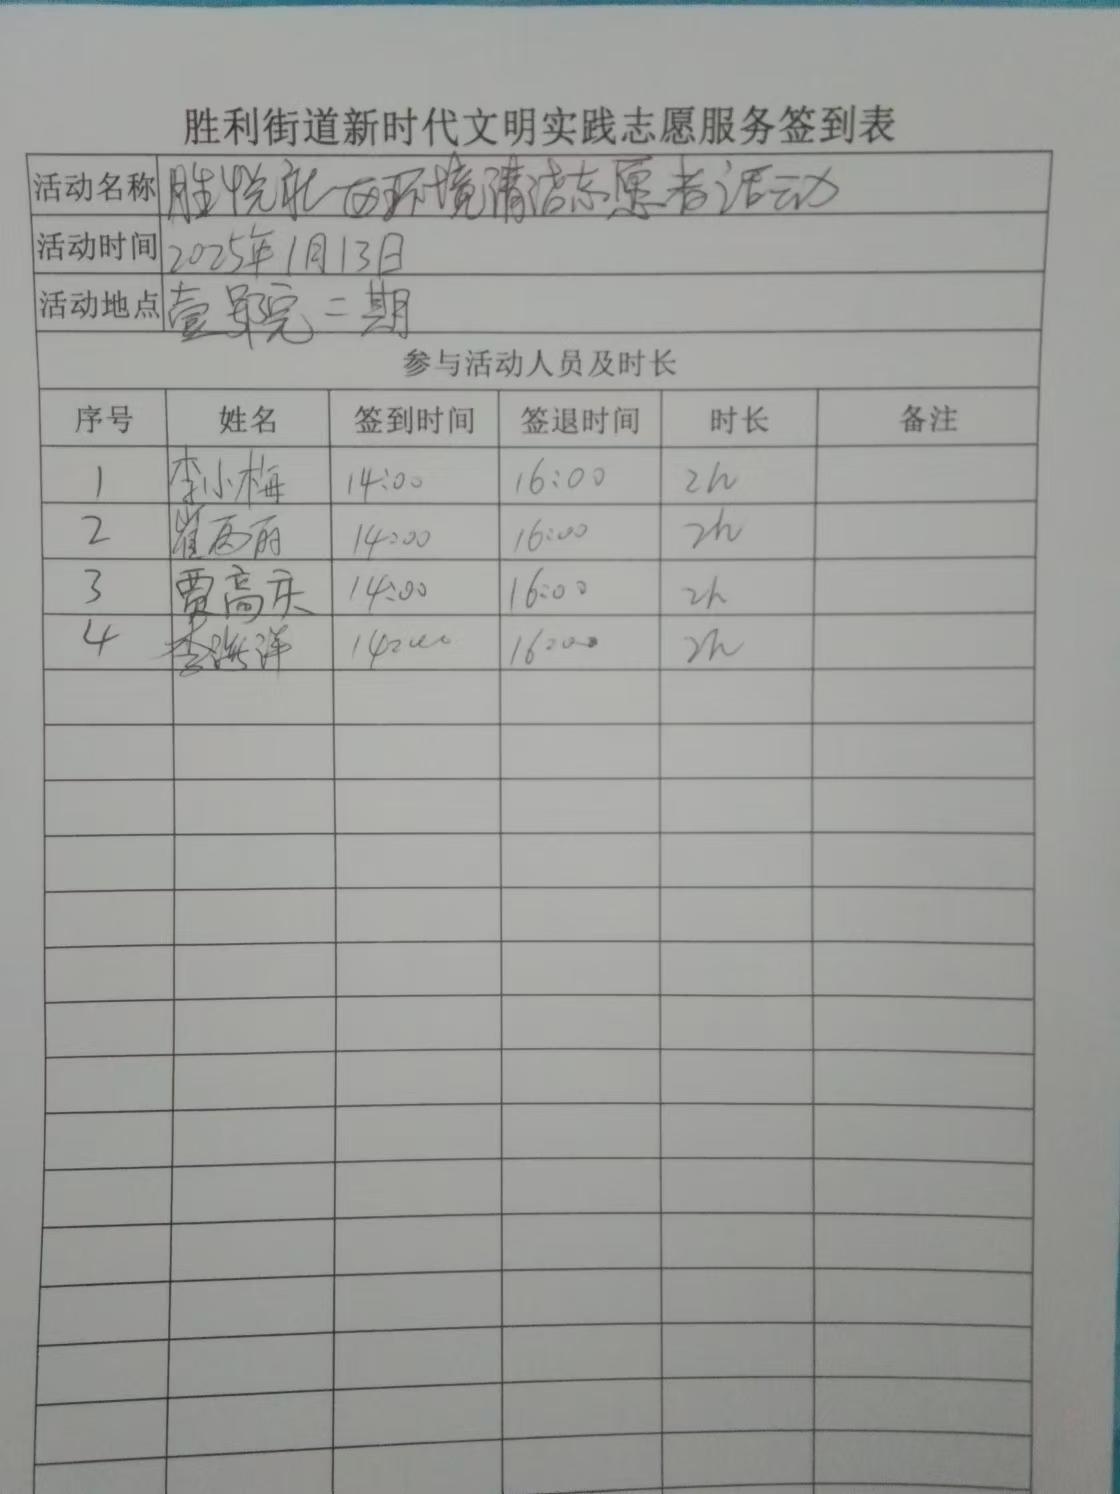 胜利街道新时代文明实践志愿服务签到表
活动名称 胜悦社区环境清洁志愿者活动
活动时间 2025年1月13日
活动地点 壹号院二期
参与活动人员及时长
序号 姓名 签到时间 签退时间 时长 备注
1 李小梅 14:00 16:00 2h
2 崔丽 14:00 16:00 2h
3 贾高庆 14:00 16:00 2h
4 李洪洋 14:00 16:00 2h